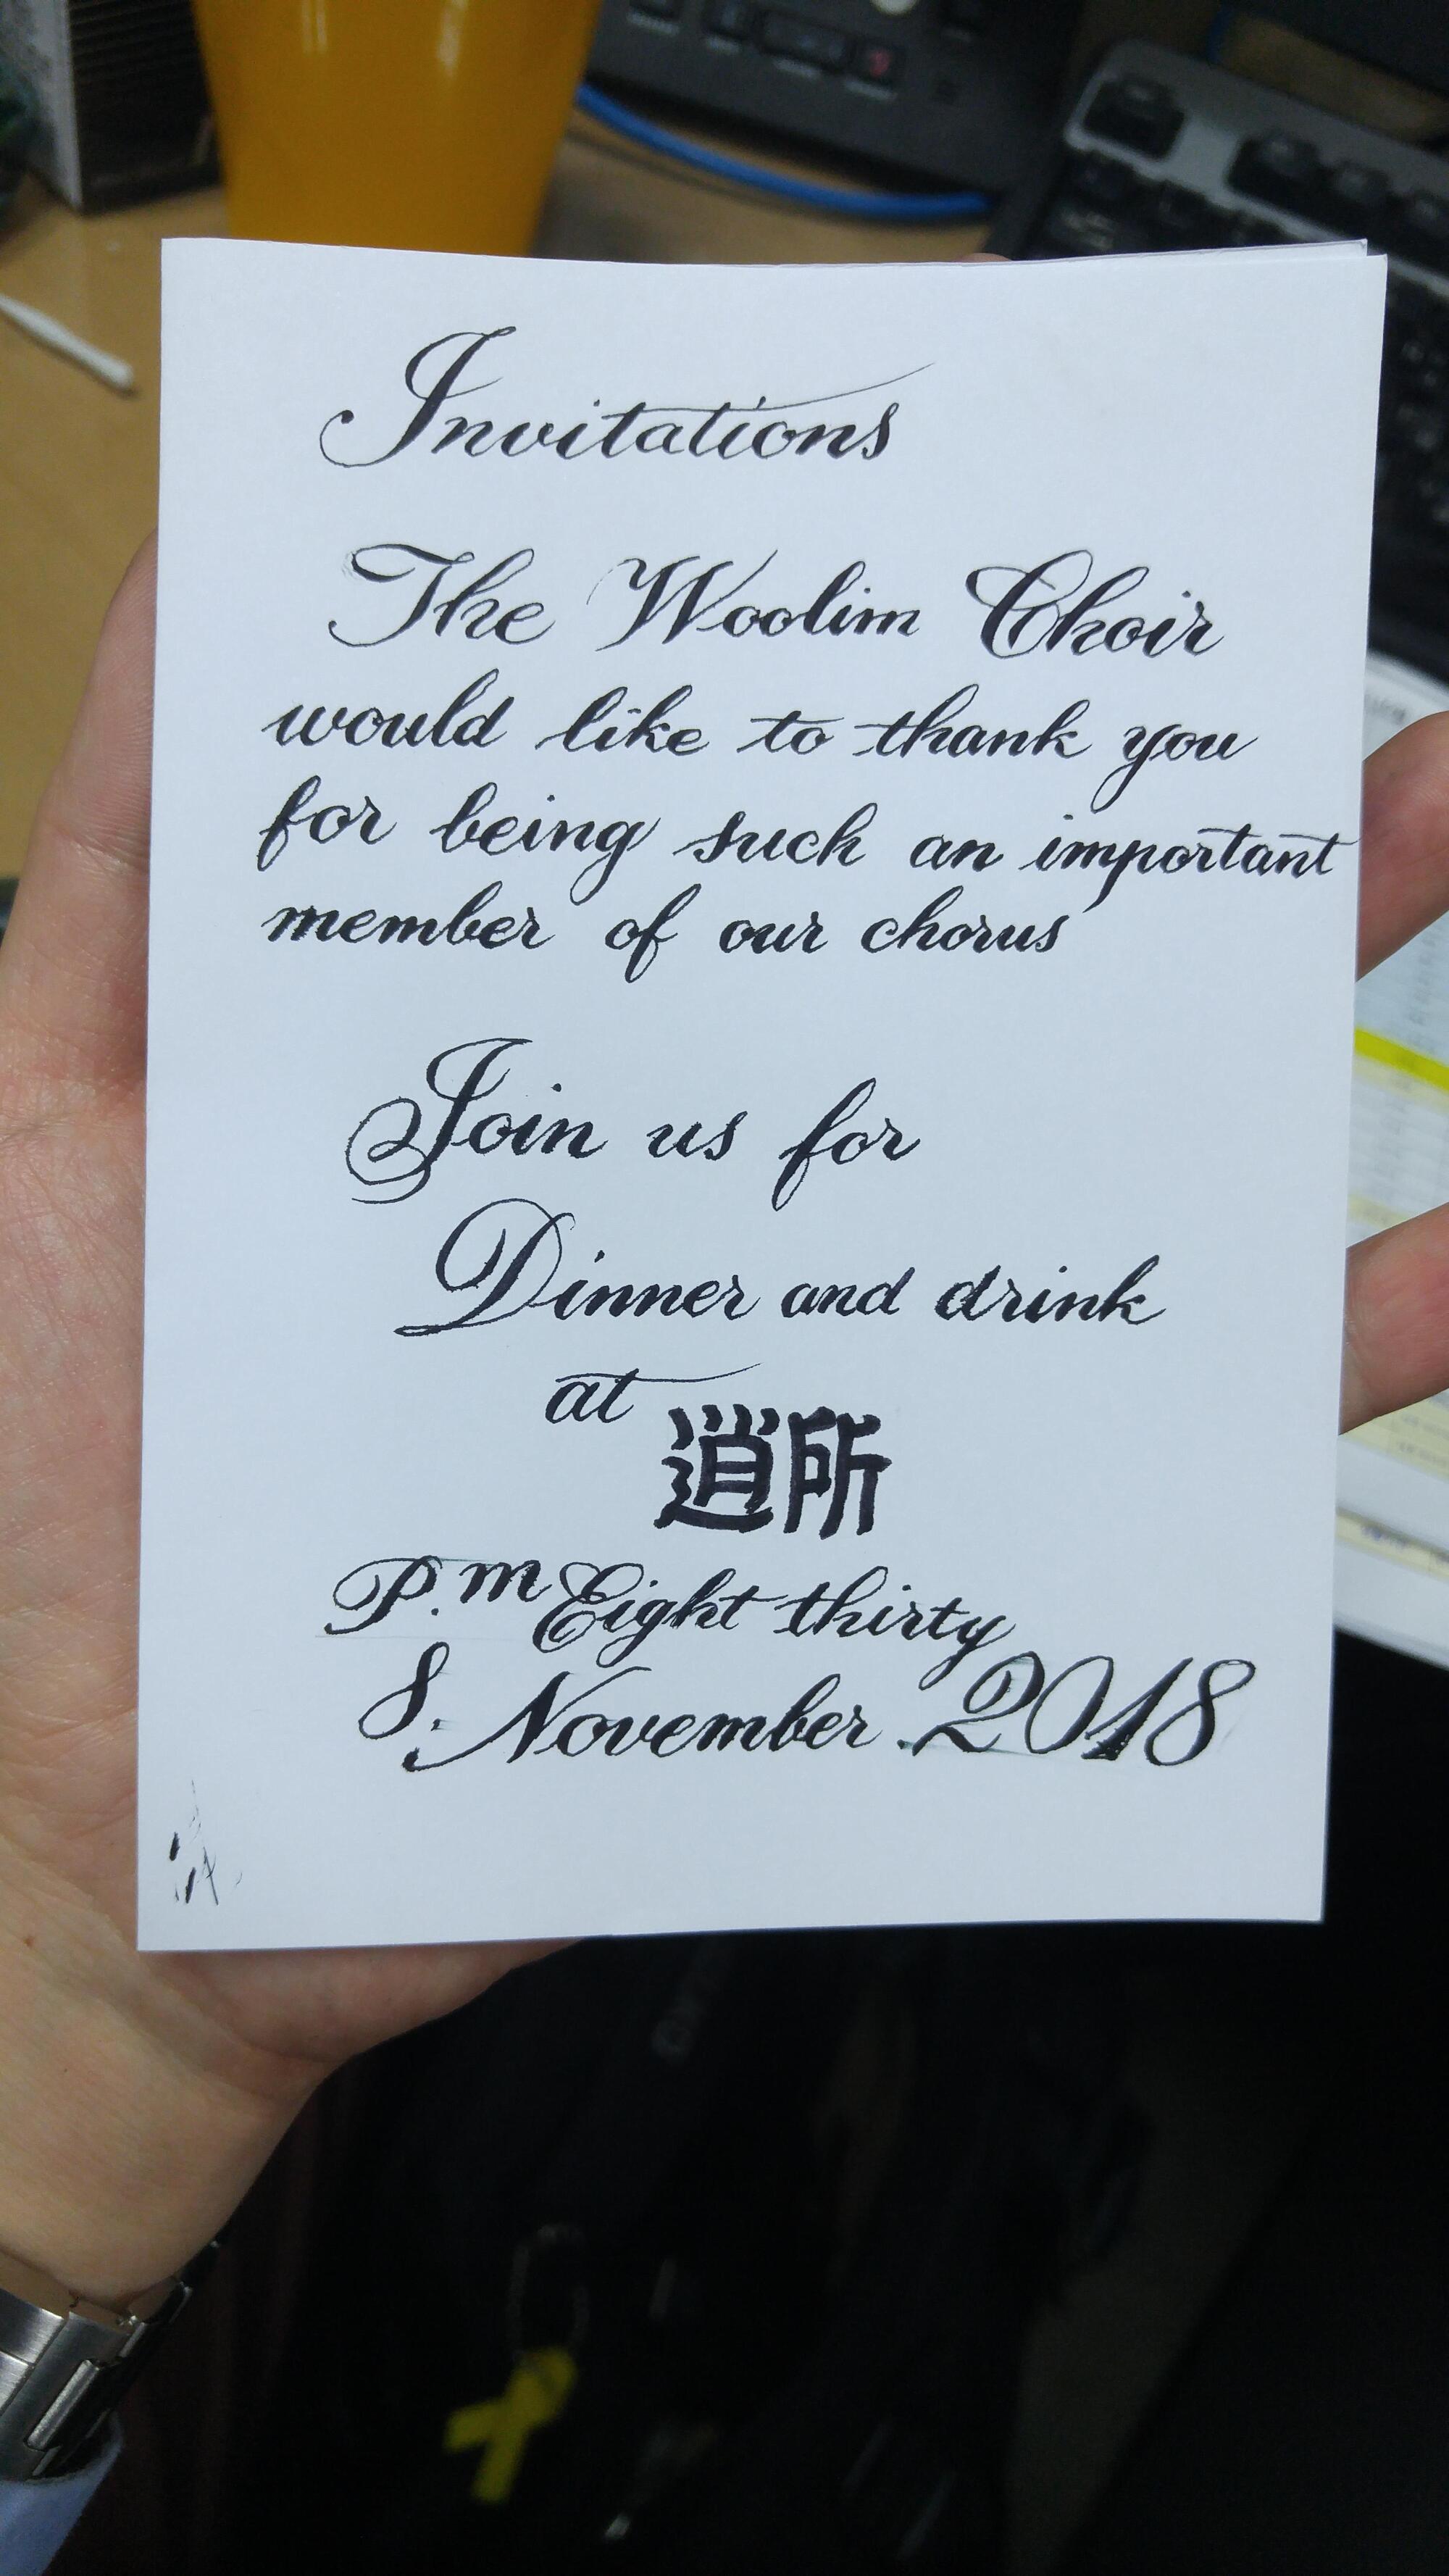 Invitations
The Woolim Choir
would like to thank you
for being such an important
member of our chorus
Join us for
Dinner and drink
at 逍所
P.m Eight thirty
8. November. 2018